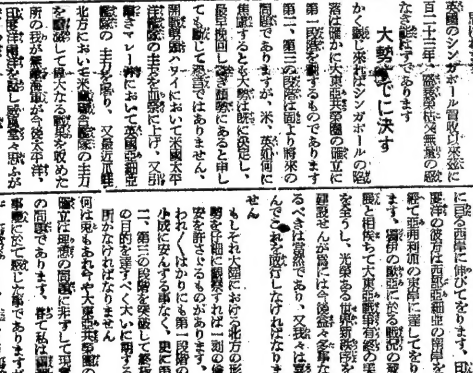 英國のシンガポール買收以來茲に
百二十三年、無量の感
なき能はずであります
大勢すでに決す
かく觀じ來ればシンガポールの陷
落は確かに大東亞共榮圏の確立に
第一段落を劃するものであります
第二、第三の段落は固より將來の
問題でありますが、米、英如何に
焦慮するとも大勢は既に決定し、
最早挽回し得ざる情勢にあると申し
ても敢て過言ではありません、
開戰劈頭ハワイにおいて米國太平
洋艦隊の主力を血祭に上げ、又引
續きマレー沖において英國亞細亞
艦隊の主力を屠り、又最近爪哇
北方において米蘭聯合艦隊の主力
を擊滅して偉大なる戰果を收めた
所の我が無敵海軍が今後太平洋、
印度兩洋を制し思ふが
に亘る西岸に伸びてをります、印
度洋の彼方は西部亞細亞の南岸を
經て亞弗利加の東岸に達してをり
ます。獨伊の歐亞に於る戰況の發
展と相俟つて大東亞戰爭有終の美
を全うし、光榮ある世界新秩序を
建設せんが爲には今後益々多事な
るべきは當然であり、又我々は喜
んでこれを敢行しなければなりま
せん
もしそれ大陸における北方の形
勢を仔細に觀察すれば一刻の偸
安を許さざるものがあります、
われ〳〵はかりにも第一段階の
小成に安んずる事なく、更に第
二、第三の段階を突破して終極
の目的を達すべく大いに期する
所がなければなりません
何はともあれ今や大東亞共榮圏の
確立は理想の問題に非ずして現實
の問題であります。嘗て私は
において感じた事であります